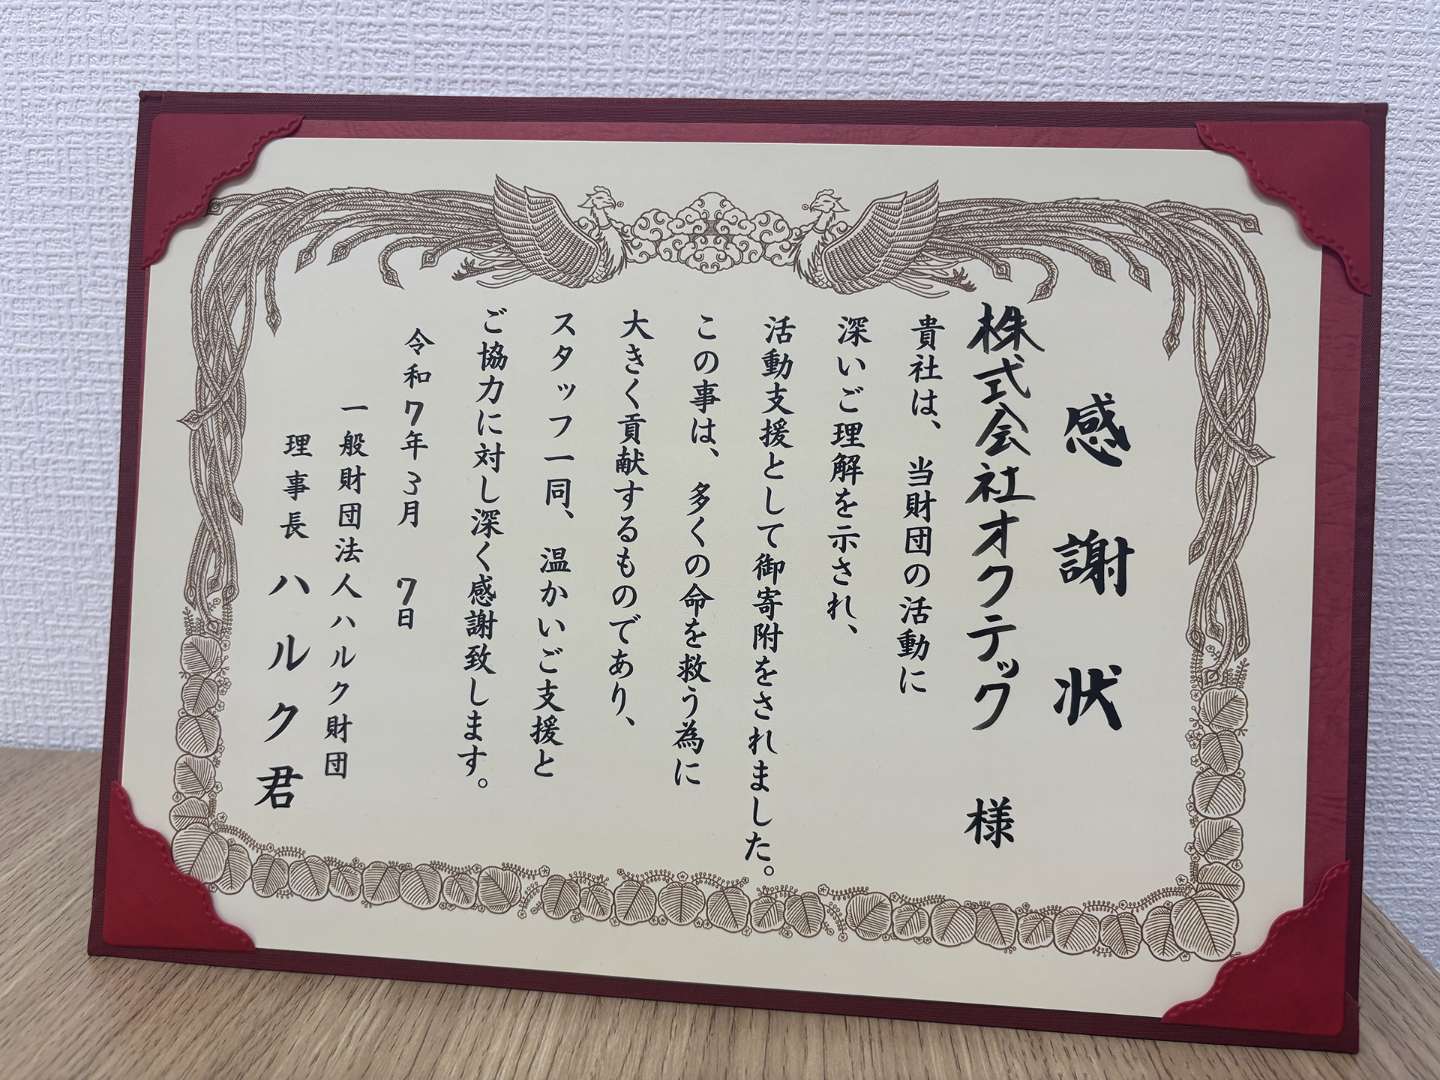 感謝状
株式会社オクテック 様
貴社は、当財団の活動に
深いご理解を示され、
活動支援として御寄附をされました。
この事は、多くの命を救う為に
大きく貢献するものであり、
スタッフ一同、温かいご支援と
ご協力に対し深く感謝致します。
令和7年3月7日
一般財団法人ハルク財団
理事長 ハルク君